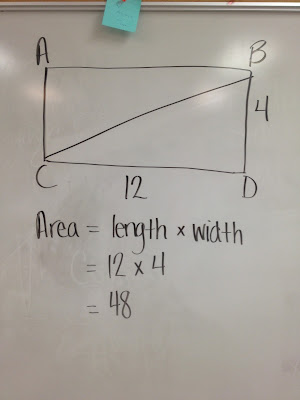 A B
4
C 12 D
Area = length x width
= 12 x 4
= 48